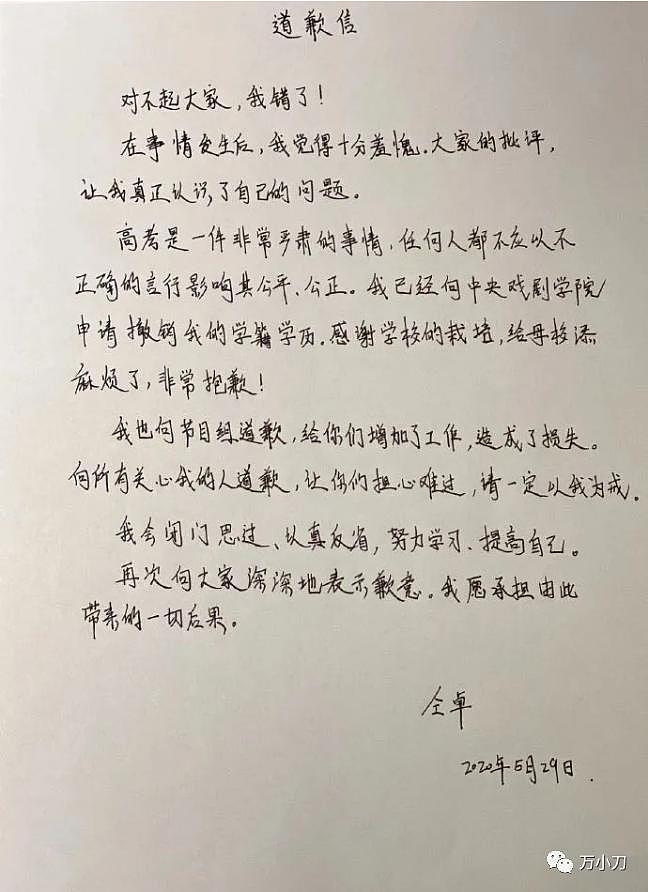 道歉信
对不起大家，我错了！
在事情发生后，我觉得十分羞愧．大家的批评，
让我真正认识了自己的问题。
高考是一件非常严肃的事情，任何人都不应以不
正确的言行影响其公平、公正。我已经向中央戏剧学院
申请撤销我的学籍学历．感谢学校的栽培，给母校添
麻烦了，非常抱歉！
我也向节目组道歉，给你们增加了工作，造成了损失。
向所有关心我的人道歉，让你们担心难过，请一定以我为戒．
我会闭门思过、认真反省，努力学习、提高自己。
再次向大家深深地表示歉意。我愿承担由此
带来的一切后果。
仝卓
2020年5月29日．
万小刀